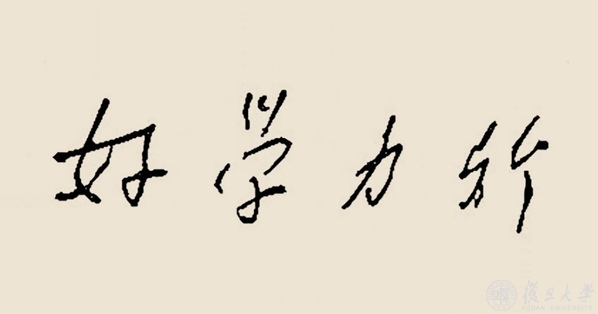 好学力行
復旦大學
FUDAN UNIVERSITY